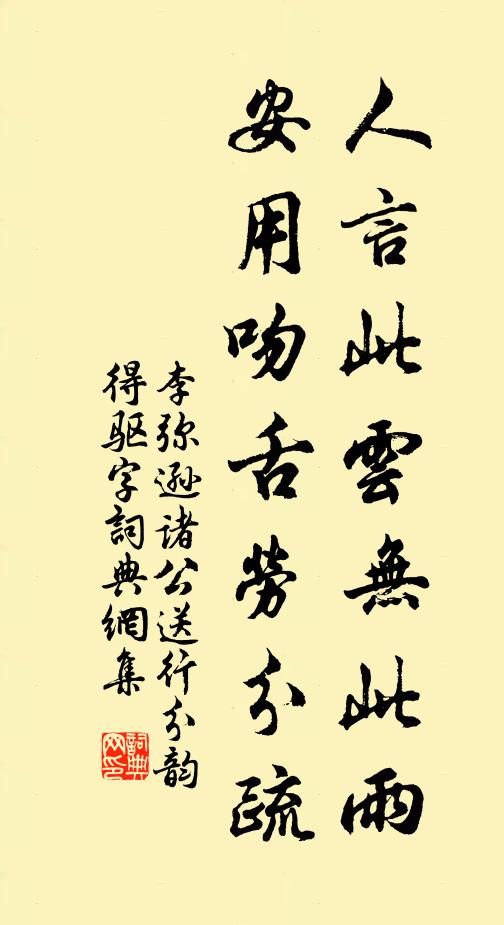 人言此雲無此雨
安用吻舌勞分疏
李弥遜诸公送行分韵
得驱字詞典網集
詞典網印